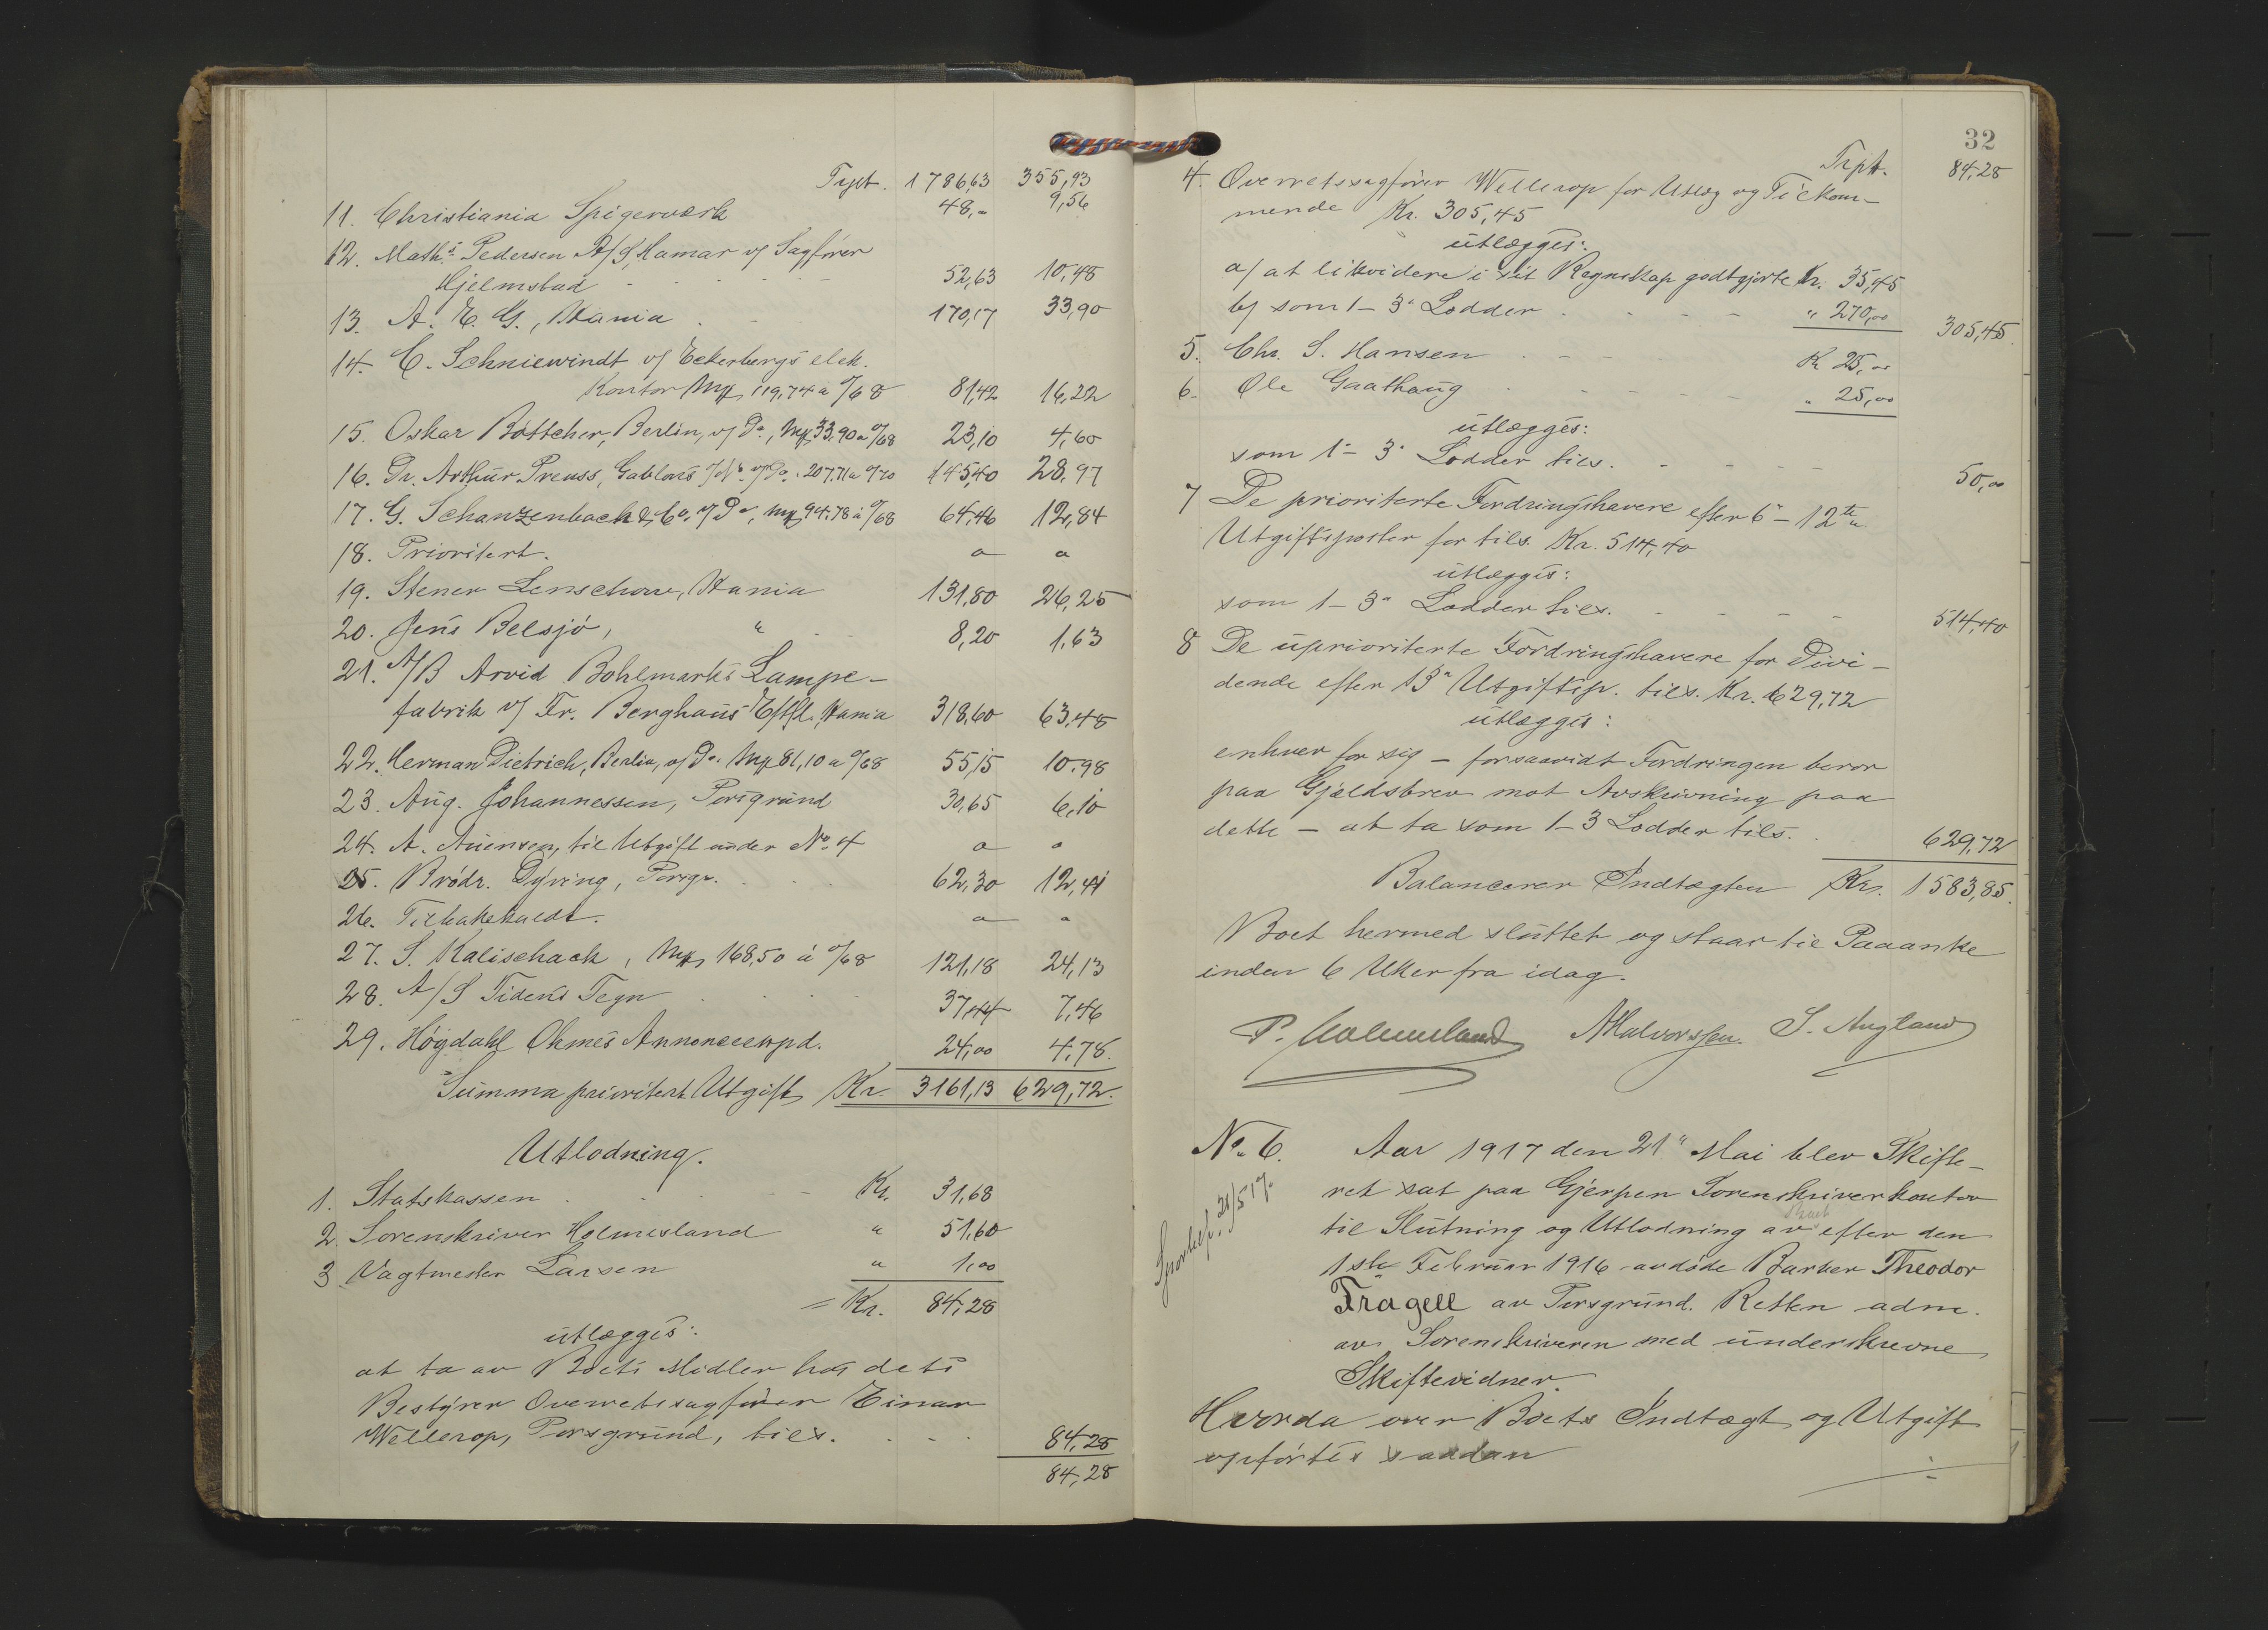 Trpt. 1786,63 355,93
11. Christiania Spigerverk 48,- 9,56
12. Maths. Pedersen A/S, Hamar v/ Sagfører
Hjelmstad 52,63 10,48
13. A. E. G., Kania 170,17 33,90
14. C. Schniewindt v/ Eckerbergs elek.
Kontor Mk 119,74 a 0/68 81,42 16,22
15. Oskar Böttcher, Berlin, v/ Do, Mk 33,90 a 0/68 23,10 4,60
16. Dr. Arthur Preuss, Gablons 207.71 a 0/70 145,40 28,97
17. G. Schanzenbach & Co. v/ Do, Mk 94.78 à 0/68 64,46 12,84
18. Prioritert. o o
19. Stener Lenschow, Kania 131,80 26,25
20. Jens Belsjø, " 8,20 1,63
21. A/B Arvid Bohlmarks Lampe-
fabrik v/ Fr. Berghaus Eftfl., Kania 318,60 63,48
22. Herman Dietrich, Berlin, v/ Do. Mk 81,10 a 0/68 55,15 10,98
23. Aug. Johannessen, Porsgrund 30,65 6,10
24. A. Auensen, til Utgift under No. 4 o o
25. Brødr. Dyring, Porsgr. 62,30 12,41
26. Tilbakekaldt. o o
27. S. Kalischack, Mk 168,50 á 0/68 121,18 24,13
28. A/S Tidens Tegn 37,44 7,46
29. Høydahl Ohmes Annonceexpd. 24,00 4,78.
Summa prioritert Utgift Kr. 3161,13 629,72.
Utlodning.
1. Statskassen Kr. 31,68
2. Sorenskriver Holmesland " 51,60
3. Vagtmester Larsen " 1,00
= Kr. 84,28
utlægges:
at ta av Boets Midler hos dets
Bestyrer Overretssagfører Einar
Wellerop, Porsgrund, tils. 84,28
84,28
32
Trpt. 84,28
4. Overretssagfører Wellerop for Utlæg og Tilkom-
mende Kr. 305,45
utlægges:
a/ at likvidere i sit Regnskap godtgjorte Kr. 35,45
b/ som 1-3° Lodder " 270,00 305,45.
5. Chr. S. Hansen Kr 25,00
6. Ole Gaathaug " 25,00
utlægges:
som 1-3° Lodder tils. 50,00
7 De prioriterte Fordringshavere efter 6"-12te
Utgiftsposter for tils. Kr. 514,40
utlægges:
som 1-3" Lodder tils. 514,40
8 De uprioriterte Fordringshavere for Divi-
dende efter 13" Utgiftsp. tils. Kr. 629,72
utlægges:
enhver for sig - forsaavidt Fordringen beror
paa Gjældsbrev mot Avskrivning paa
dette - at ta som 1-3 Lodder tils. 629,72
Balancerer Indtægten Kr. 1583,85.
Boet hermed sluttet og staar til Paaanke
inden 6 Uker fra idag.
P. Holmesland AHalvorssen. S. Augland
No. 6. Aar 1917 den 21" Mai blev Skifte-
ret sat paa Gjerpen Sorenskriverkontor
til Slutning og Utlodning av Boet efter den
1ste Februar 1916 avdøde Barber Theodor
Fragell av Porsgrund. Retten adm.
av Sorenskriveren med underskrevne
Skiftevidner.
Hvorda over Boets Indtægt og Utgift
opførtes saadan